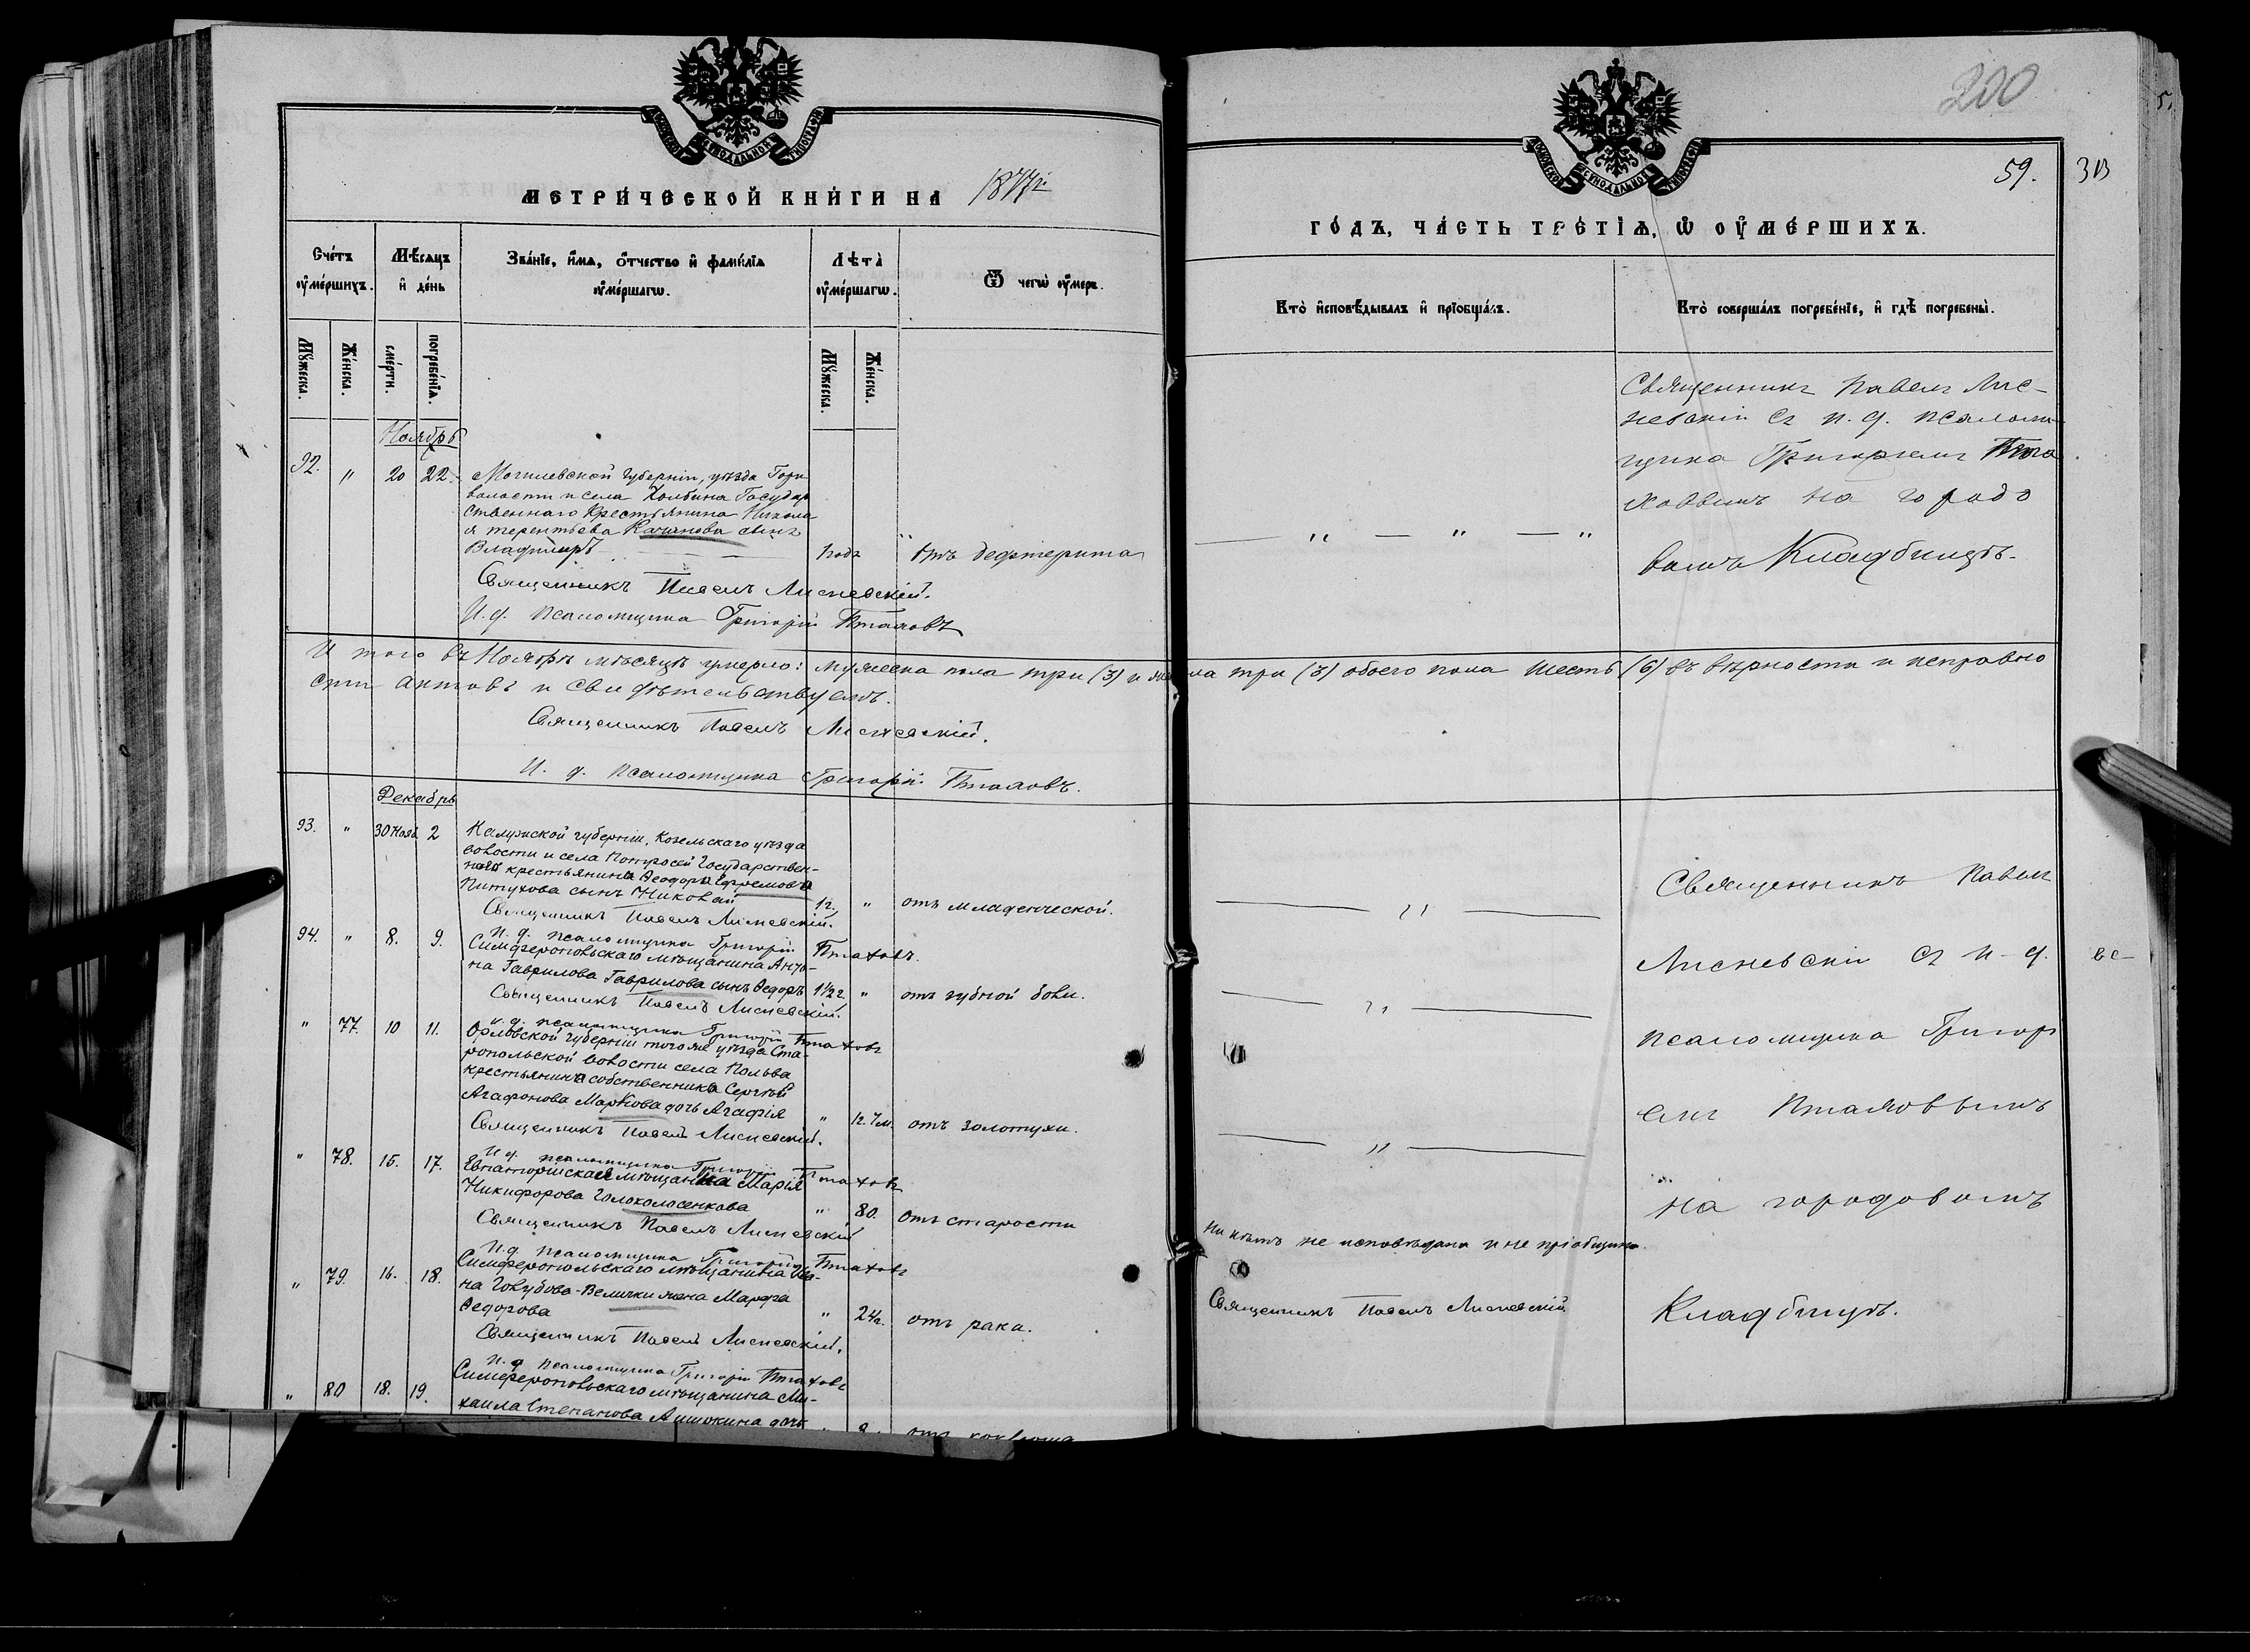 МЕТРИЧЕСКОЙ КНИГИ НА 1877 г.
Счетъ умершихъ.
Мѣсяцъ и день
Званіе, имя, отчество и фамилія умершагѡ.
Лѣта умершагѡ.
Ѿ чегѡ умеръ.
Мужеска.
Женска.
смерти.
погребенія.
Мужеска.
Женска.
Ноябрь
92. " 20 22.
Могилевской губерніи, уѣзда Горк
волости и села Холбина Государ
ственнаго Крестьянина Никола
я терентьева Качанова сынъ
Владиміръ 1 годъ " отъ дефтерита
Священникъ Павелъ Лисневскій.
И. д. псаломщика Григорій Птаховъ
И того въ Ноябрѣ мѣсяцѣ умерло: мужеска пола три (3) и три (3) обоего пола шесть (6) въ вѣрности и исправно
сти актовъ и свидѣтельствуемъ.
Священникъ Павелъ Лисневскій.
И. д. псаломщика Григорій Птаховъ.
Декабрь
93. " 30 Нояб. 2
Калужской губерніи, Козельскаго уѣзда
волости и села Государствен-
наго крестьянина Ѳеодора Ефремова
Питухова сынъ Николай 1 г. " отъ младенческой.
Священникъ Павелъ Лисневскій.
И. д. псаломщика Григорій Птаховъ.
94. " 8. 9.
Симферопольскаго мѣщанина Анто-
на Гаврилова Гаврилова сынъ Ѳедоръ 1½ г. " отъ зубной боли.
Священникъ Павелъ Лисневскій.
И. д. псаломщика Григорій Птаховъ
" 77. 10 11.
Орловской губерніи того же уѣзда Ста-
ропольской волости села
крестьянина собственника Сергѣй
Агафонова Маркова дочь Агафія " 1 г. 7 м. отъ золотухи.
Священникъ Павелъ Лисневскій.
И. д. псаломщика Григорій Птаховъ
" 78. 15. 17.
Евпаторійская мѣщанка Марія
Никифорова Голоколосенкова " 80. отъ старости
Священникъ Павелъ Лисневскій
И. д. псаломщика Григорій Птаховъ
" 79. 16. 18.
Симферопольскаго мѣщанина Ива-
на Голубова-Велички жена Марфа
Ѳедорова " 24 г. отъ рака.
Священникъ Павелъ Лисневскій.
И. д. псаломщика Григорій Птаховъ
" 80 18. 19.
Симферопольскаго мѣщанина Ми-
хаила Степанова дочь
отъ коклюша
200
59.
313
ГОДЪ, ЧАСТЬ ТРЕТІѦ, Ѡ УМЕРШИХЪ.
Кто исповѣдывалъ и пріобщалъ.
Кто совершалъ погребеніе, и гдѣ погребены.
Священникъ Павелъ Лис-
невскій съ и. д. псаломщ
щика Григоріемъ Пта
ховымъ на городо
вомъ Кладбищѣ.
— " — " — "
Священникъ Павелъ
Лисневскій съ и. д.
псаломщика Григор
емъ Птаховымъ
на городовомъ
Кладбищѣ.
Ни кѣмъ не исповѣдана и не пріобщена.
Священникъ Павелъ Лисневскій